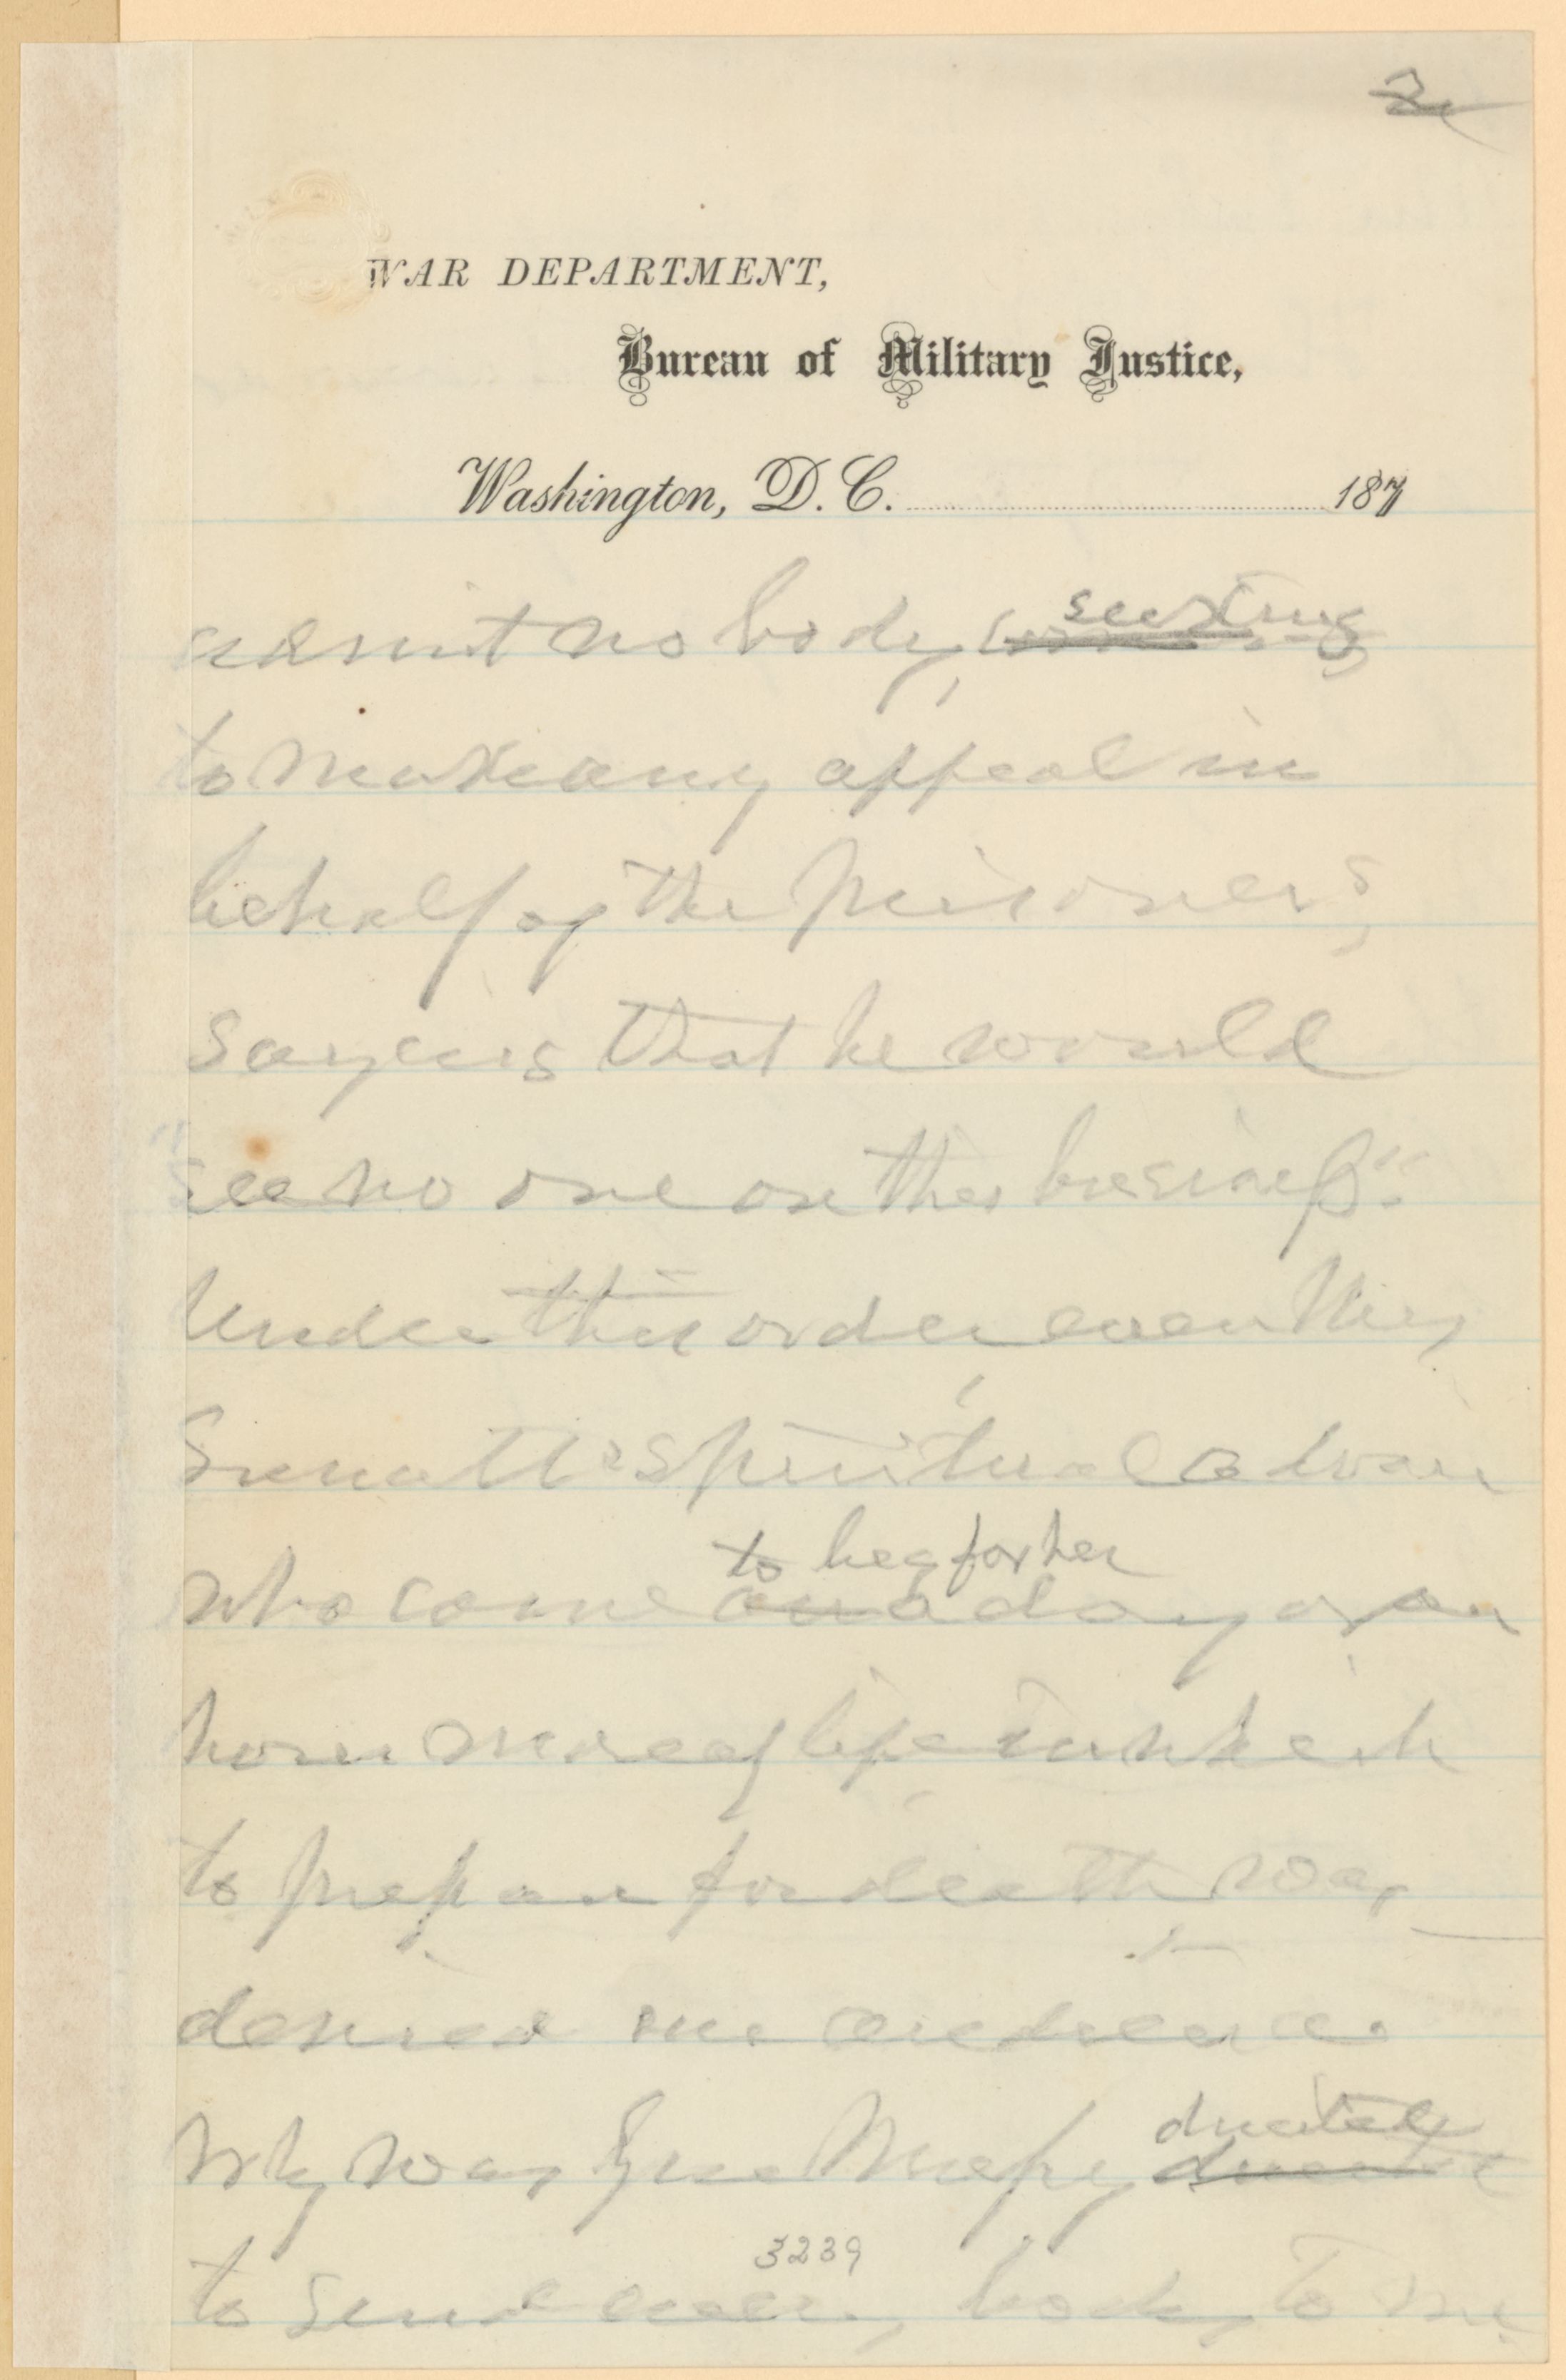 2
WAR DEPARTMENT,
Bureau of Military Justice,
Washington, D. C. 187
seeking
admit no body, coming
to make any appeal in
behalf of the prisoners,
saying that he would
"see no one on this business".
Under this order even Mrs
Suratt's spiritual adviser
to beg for her
who came a day or an
hour more of life in which
to prepare for death was
denied an audience.
directed
Why was Gen Mussey
to send every body to me
3239